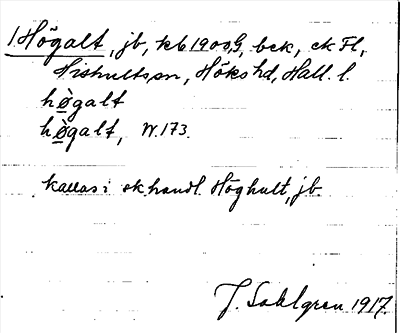 1. Högalt, jb, kb 1900 G, bek, ek Fl,
Hishults sn, Höks hd, Hall. l.
hø̀galt
hø̀galt, N. 173.
kallas i sk. handl. Höghult, jb.
J. Sahlgren 1917.